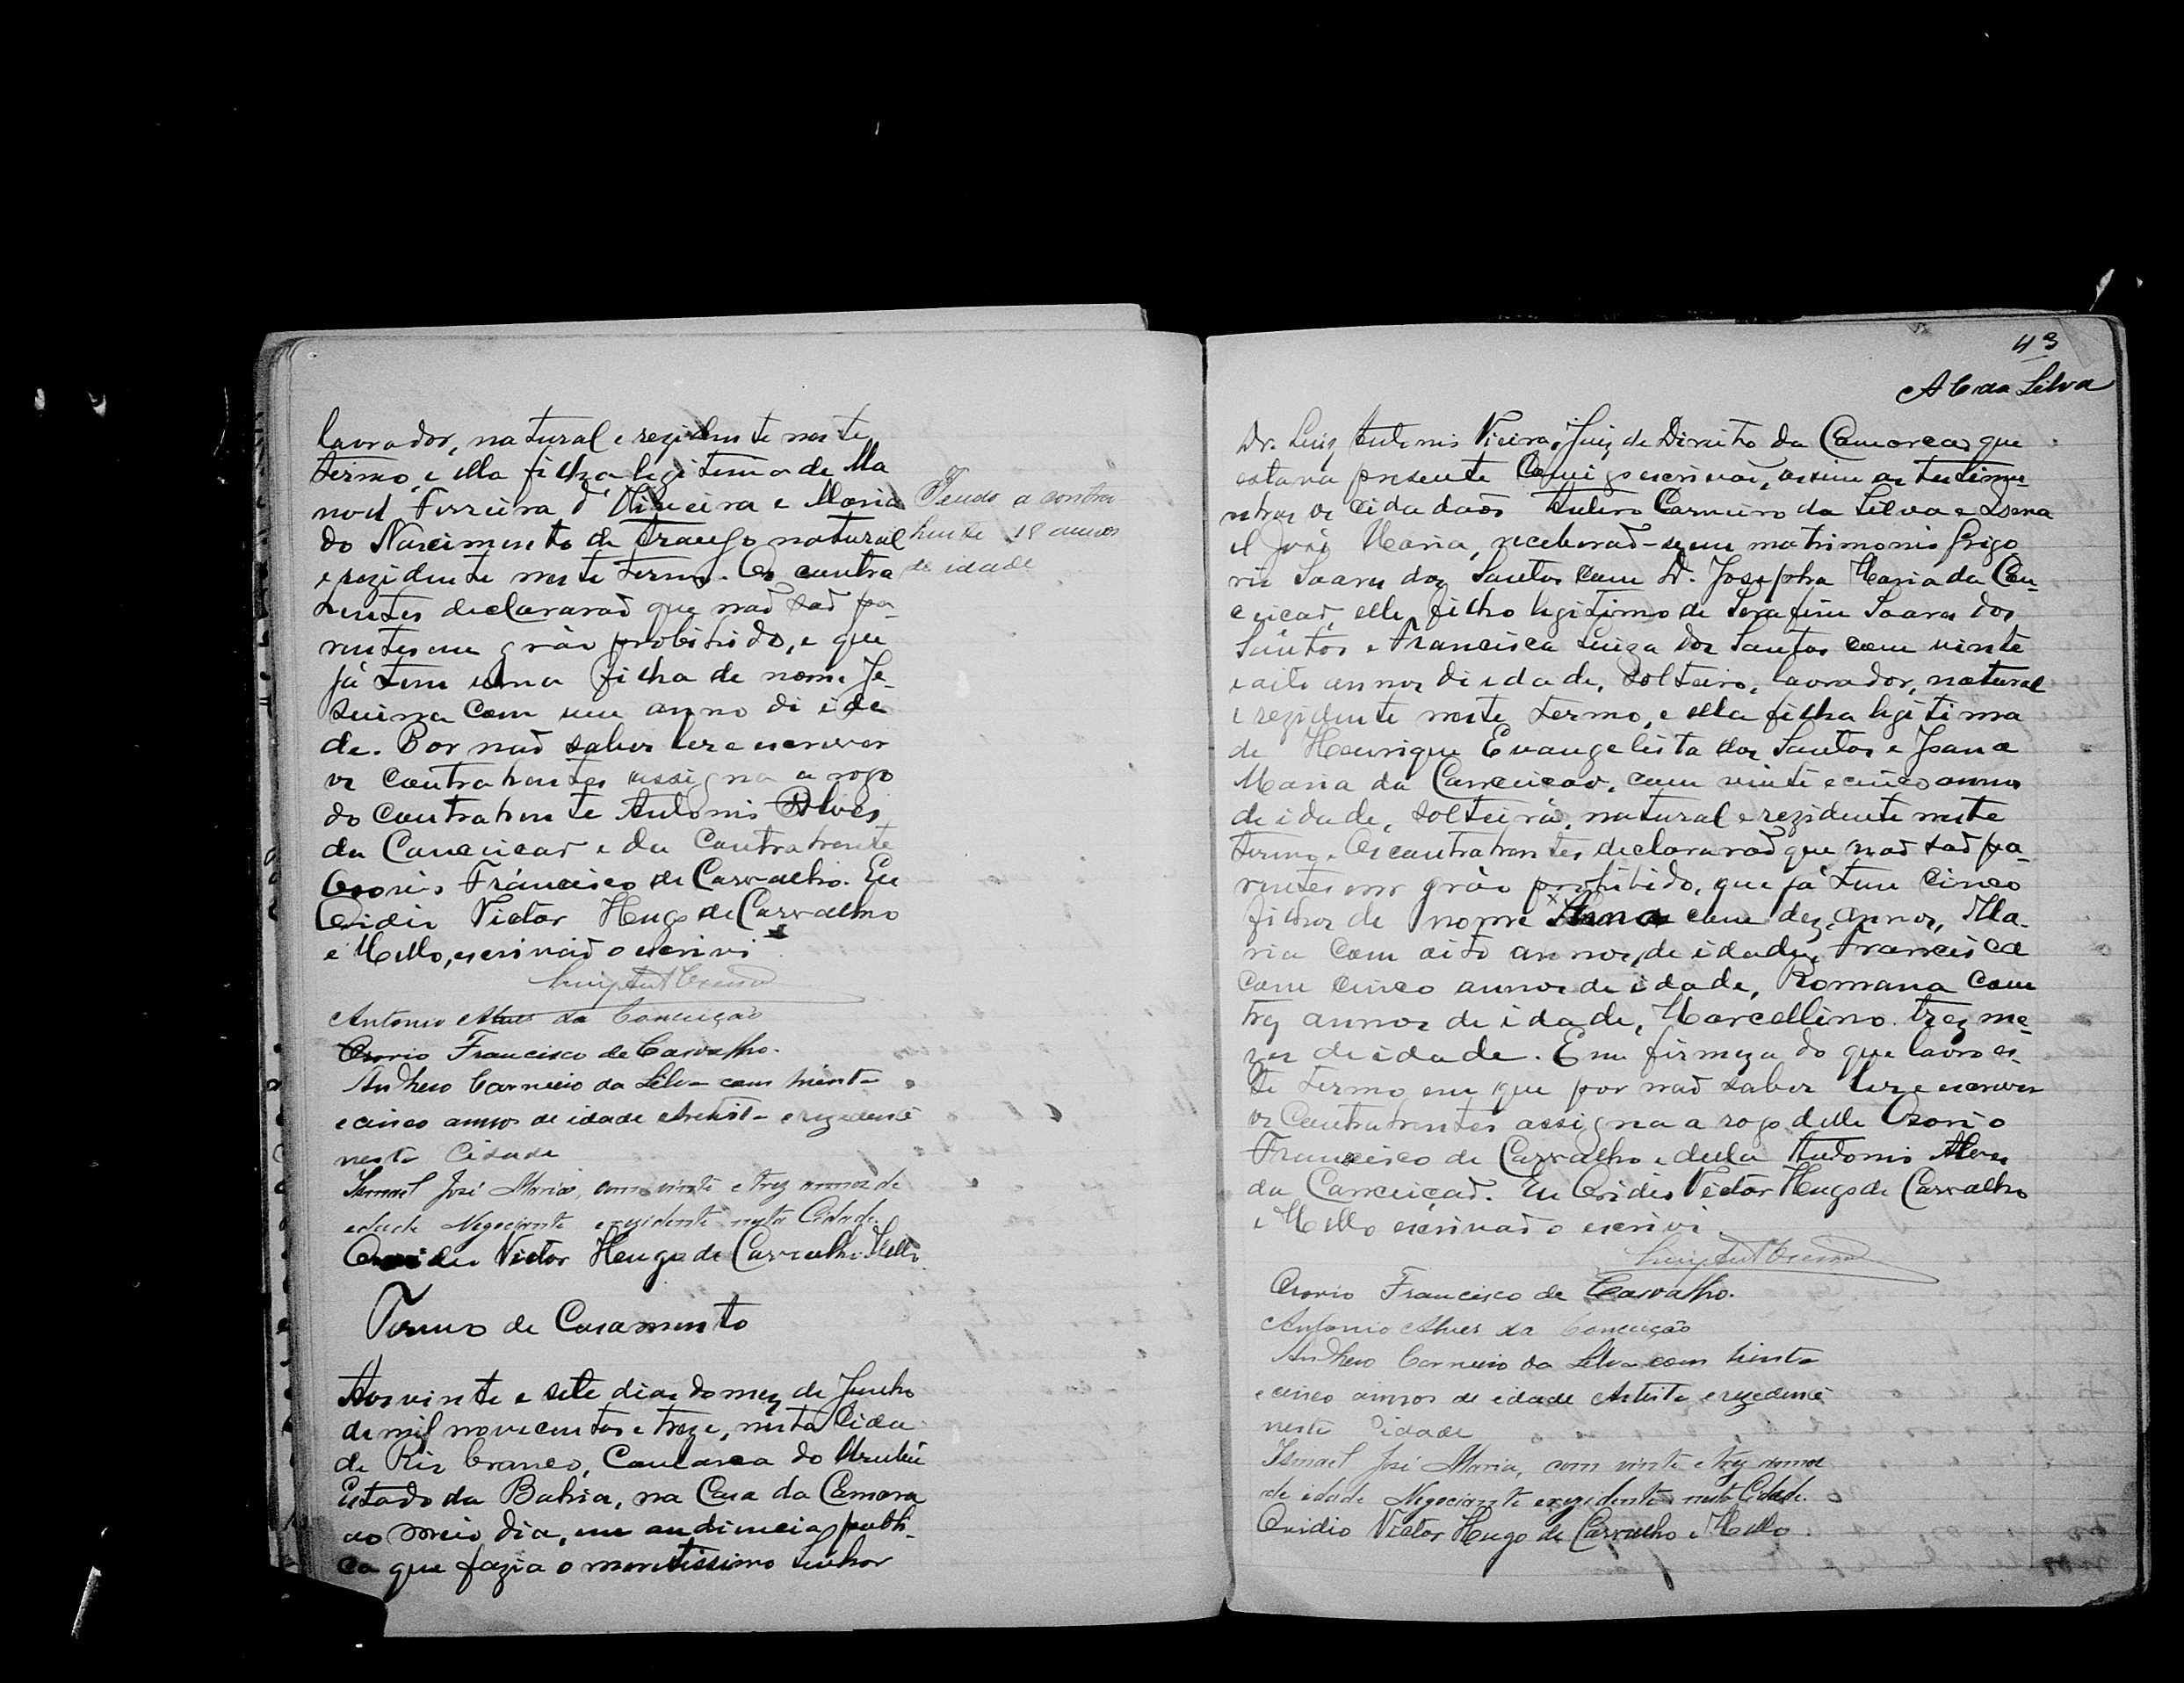 lavrador, natural e rezidente neste
termo, e ella filha legitima de Ma
noel Ferreira d' Oliveira e Maria
do Nascimento de Araujo natural
e rezidente neste termo. Os contra
hentes declararaõ que naõ saõ pa-
rentes em gráo prohibido, e que
já tem uma filha de nome Je-
suina com um anno di ida
de. Por naõ saber ler e escrever
os contrahentes assigna a rogo
do contrahente Antonio Alves
da Conceicaõ e da Contrahente
Osorio Francisco de Carvalho. Eu
Ovidio Victor Hugo de Carvalho
e Mello, escrivaõ o escrivi
Tendo a contra
hente 18 annos
de idade
Antonio Alves da Conceição
Osorio Francisco de Carvalho.
Anthero Carneiro da Silva com trinta
e cinco annos de idade Artista e rezidente
nesta Cidade
Ismael José Maria, com vinte e trez annos de
edade Negociante e rezidente nesta Cidade.
Ovidio Victor Hugo de Carvalho Mello
Termo de Casamento
Aos vinte e sete dias do mez de Junho
de mil novecentos e treze, nesta Cida
de Rio branco, Comarca do Urubú
Estado da Bahia, na Casa da Camara
ao meio dia, em audiencia publi-
ca que fazia o meretissimo Senhor
43
A C da Silva
Dr. Luiz Antonio Vieira, Juiz de Direito da Comarca, que
estava presente Comigo escrivaõ, assim as testimu-
nhas os Cidadaõs Antero Carneiro da Silva e Isma
el José Maria, receberaõ-se em matrimonio Grigo
rio Soares dos Santos com D. Josepha Maria da Con-
ceicaõ, elle filho legitimo de Serafim Soares dos
Santos e Francisca Luiza dos Santos com vinte
e oito annos di idade, solteiro, lavrador, natural
e rezidente neste termo, e ella filha legitima
de Henrique Evangelista dos Santos e Joana
Maria da Conceicao, com vinte e cinco annos
de idade, solteira, natural e rezidente neste
termo. Os contrahentes declararaõ que naõ saõ pa-
rentes em gráo prohibido, que já tem cinco
filhos de nome Anna com dez annos, Ma-
ria com oito annos de idade, Francisca
com cinco annos de idade, Romana com
trez annos de idade, Marcellino trez me-
zes de idade. E em firmeza do que lavro es-
te termo em que por naõ saber ler e escrever
os Contrahentes assigna a rogo delle Osorio
Francisco de Carvalho e della Antonio Alves
da Conceiçaõ. Eu Ovidio Victor Hugo de Carvalho
e Mello escrivaõ o escrivi
Osorio Francisco de Carvalho.
Antonio Alves da Conceição
Anthero Carneiro da Silva com trinta
e cinco annos de edade Artista e rezidente
nesta Cidade
Ismael José Maria, com vinte e trez annos
de idade Negociante e rezidente nesta Cidade.
Ovidio Victor Hugo de Carvalho e Mello